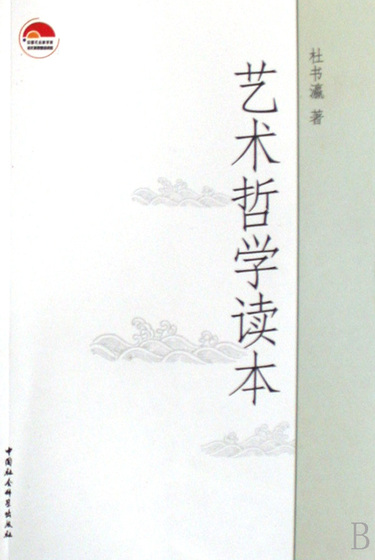 杜书瀛 著
艺术哲学读本
中国社会科学出版社
B